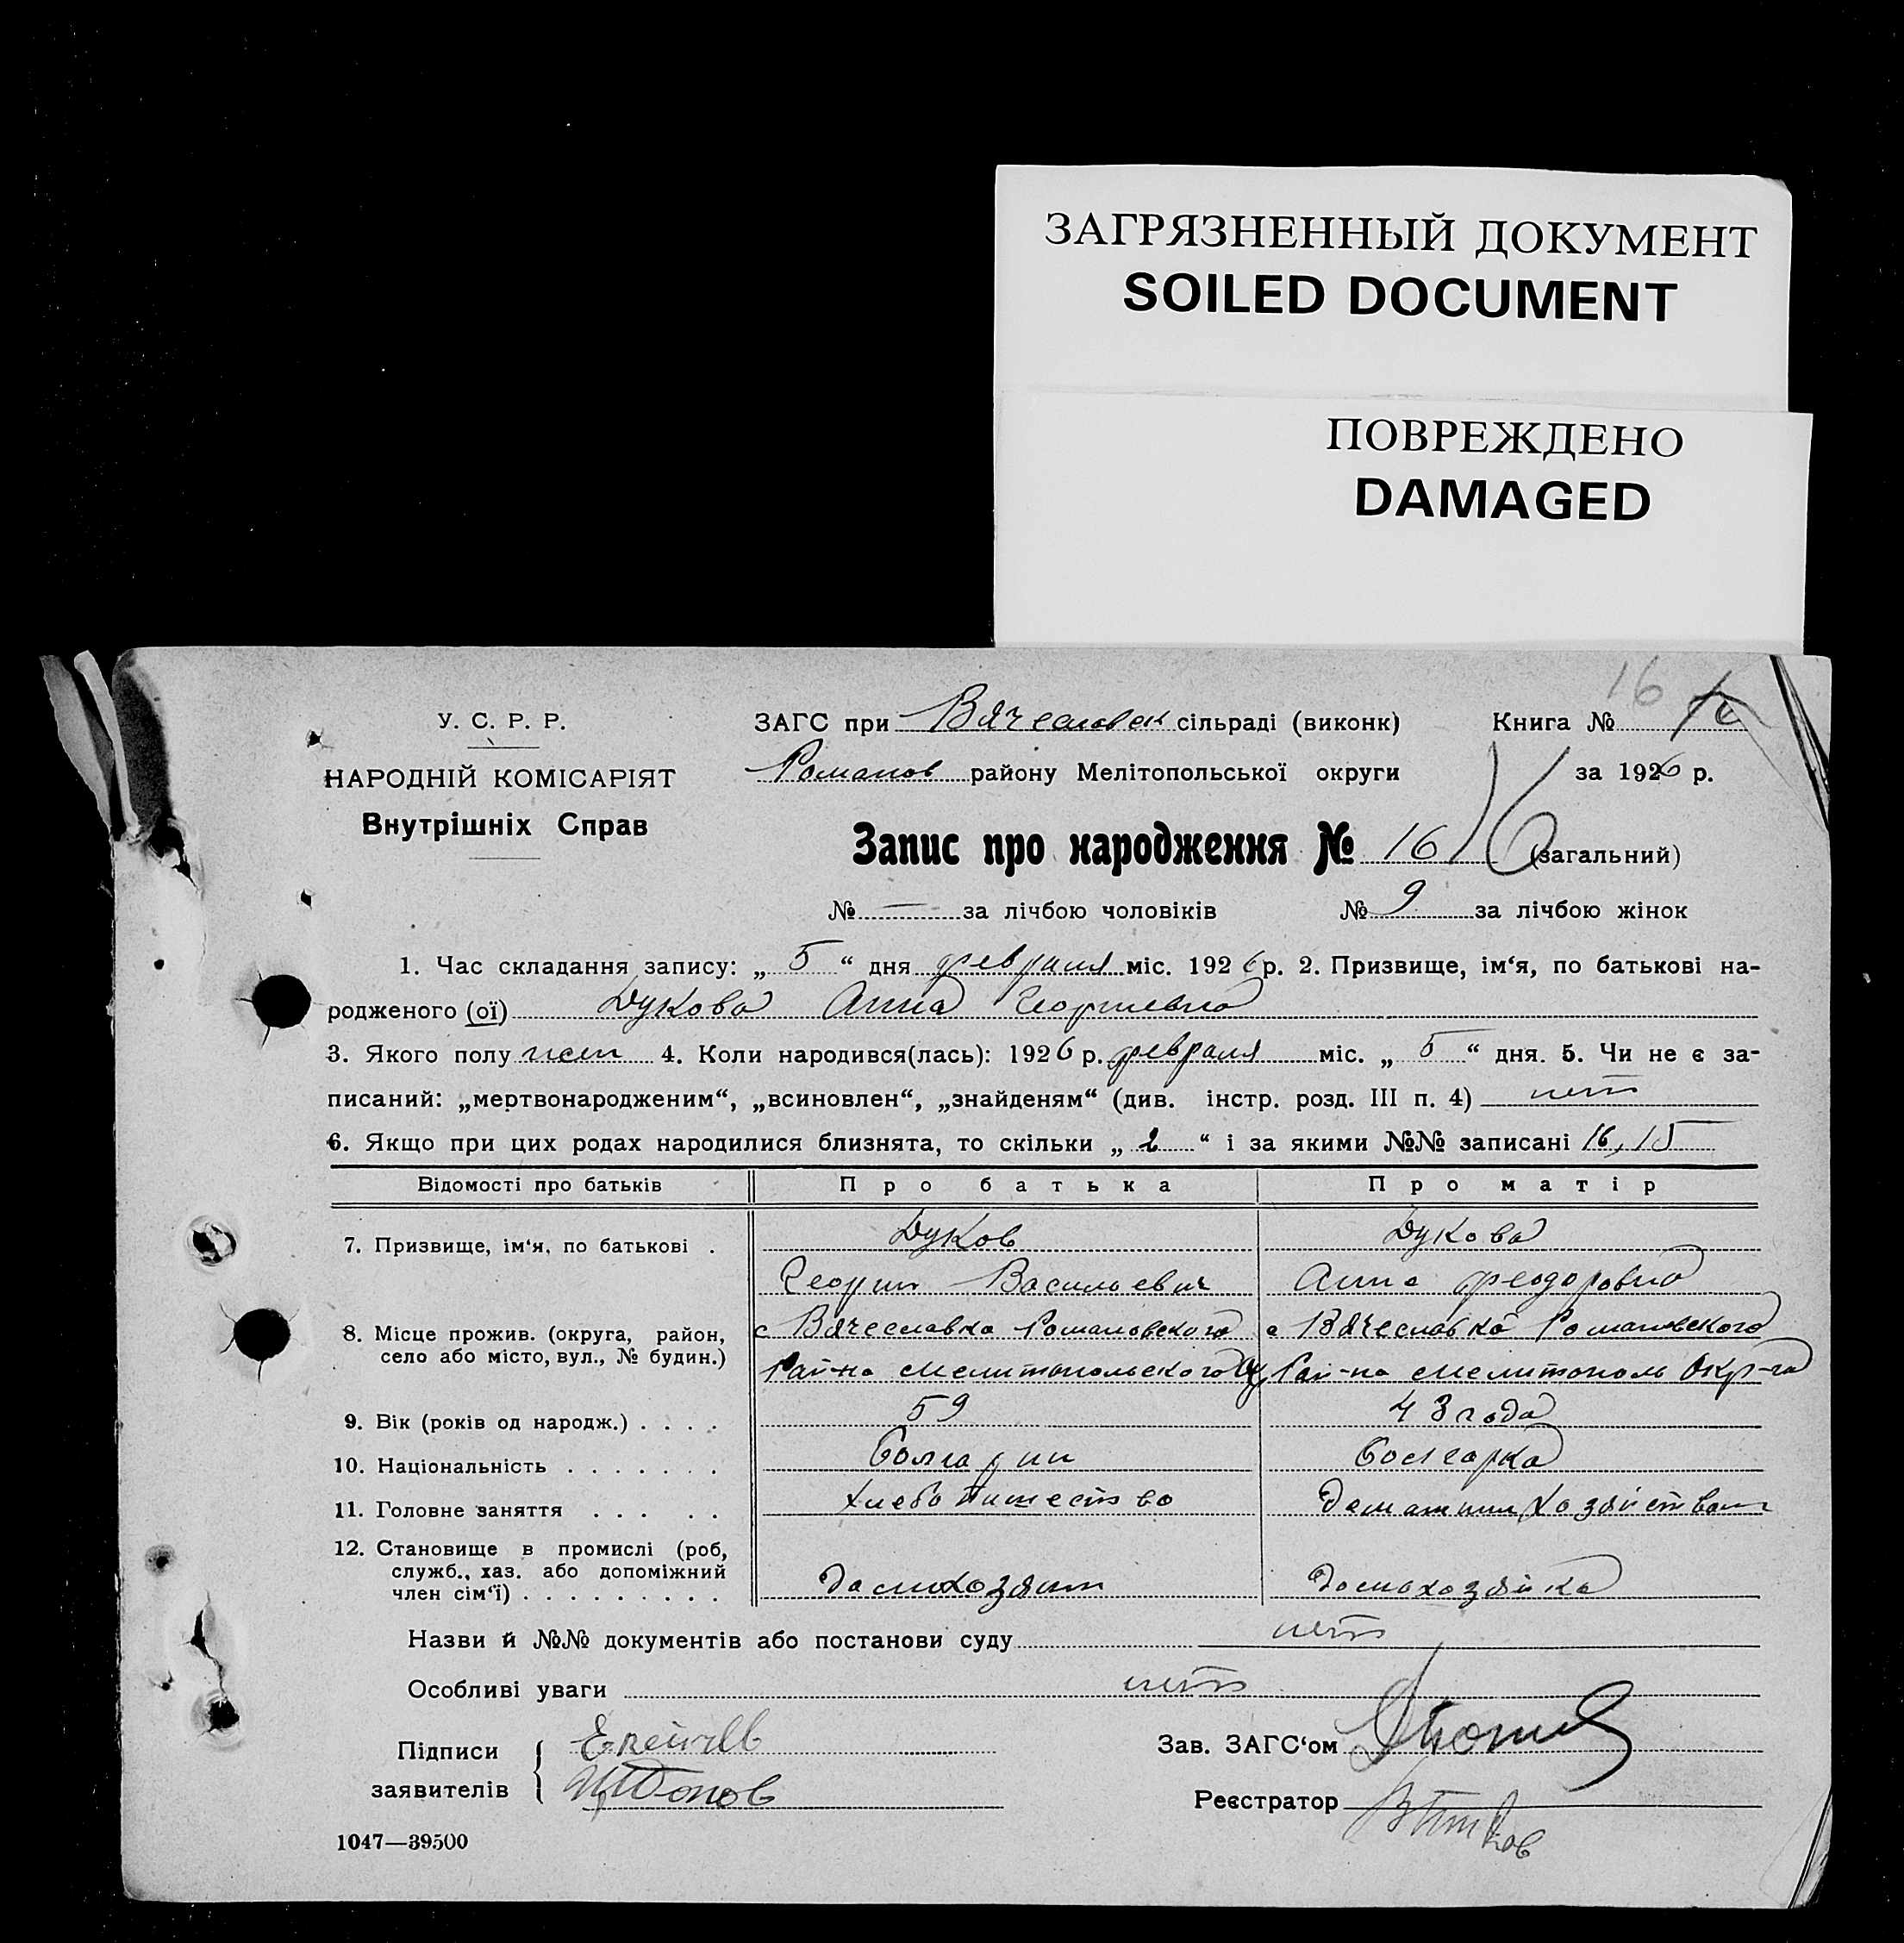 ЗАГРЯЗНЕННЫЙ ДОКУМЕНТ
SOILED DOCUMENT
ПОВРЕЖДЕНО
DAMAGED
16
У. С. Р. Р.
НАРОДНІЙ КОМІСАРІЯТ
Внутрішніх Справ
ЗАГС при Вячеславск сільраді (виконк)
Книга №
Романов району Мелітопольської округи
за 1926 р.
Запис про народження № 16 16 (загальний)
№ — за лічбою чоловіків № 9 за лічбою жінок
1. Час складання запису: „ 5 “ дня февраля міс. 1926 р. 2. Призвище, ім‘я, по батькові на-
родженого (ої) Дукова Анна Георгиевна
3. Якого полу жен 4. Коли народився(лась): 1926 р. февраля міс. „ 5 “ дня. 5. Чи не є за-
писаний: „мертвонародженим“, „всиновлен“, „знайденям“ (див. інстр. розд. III п. 4) нет
6. Якщо при цих родах народилися близнята, то скільки „ 2 “ і за якими №№ записані 16, 15
Відомості про батьків Про батька Про матір
7. Призвище, ім‘я, по батькові . Дуков Дукова
Георгий Васильевич Анна Феодоровна
8. Місце прожив. (округа, район, с Вячеславка Романовского с Вячеславка Романовского
село або місто, вул., № будин.) Рай-на Мелитопольского Рай-на Мелитополь Окр-га
9. Вік (років од народж.) . . . . 59 43 года
10. Національність . . . . . . . Болгарин Болгарка
11. Головне заняття . . . . . Хлебопашество Домашним Хозяйством
12. Становище в промислі (роб,
служб., хаз. або допоміжний
член сім‘ї) . . . . . . . . . Домохозяин Домохозяйка
Назви й №№ документів або постанови суду нет
Особливі уваги нет
Підписи
заявителів
Зав. ЗАГС‘ом
Реєстратор
1047—39500